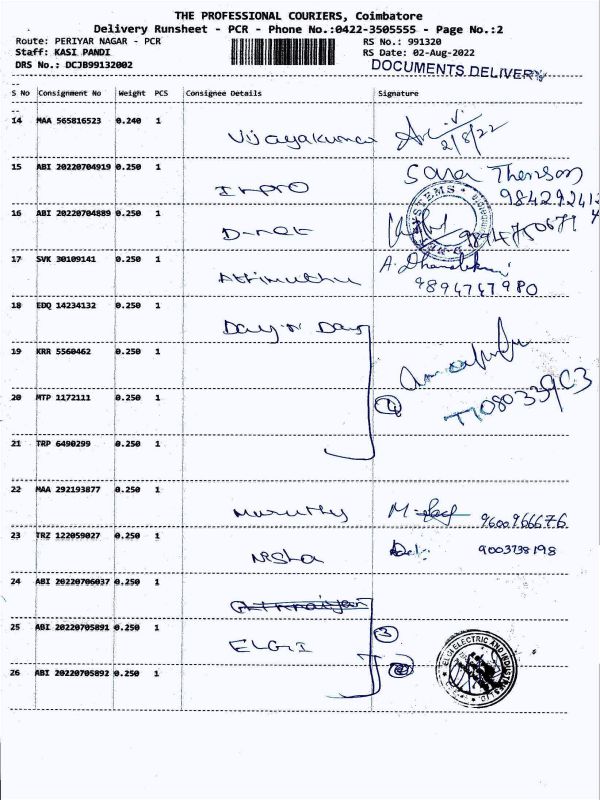 THE PROFESSIONAL COURIERS, Coimbatore
Delivery Runsheet - PCR - Phone No.:0422-3505555 - Page No.:2
Route: PERIYAR NAGAR - PCR RS No.: 991320
Staff: KASI PANDI RS Date: 02-Aug-2022
DRS No.: DCJB99132002 DOCUMENTS DELIVERY
S No Consignment No Weight PCS Consignee Details Signature
14 MAA 565816523 0.240 1 Vijayakumar 2/8/22
15 ABI 20220704919 0.250 1 Inpro Sara
16 ABI 20220704889 0.250 1 D-net
17 SVK 30109141 0.250 1 Athimuthu A. Dhanalakshmi
9894747980
18 EDQ 14234132 0.250 1 Day n Day
19 KRR 5560462 0.250 1
20 MTP 1172111 0.250 1 4
21 TRP 6490299 0.250 1
22 MAA 292193877 0.250 1 Maruthy 9600966676
23 TRZ 122059027 0.250 1 Nisha 9003738198
24 ABI 20220706037 0.250 1
25 ABI 20220705891 0.250 1 ELGI 3
26 ABI 20220705892 0.250 1
ELGI ELECTRIC AND INDUSTRIES LTD.